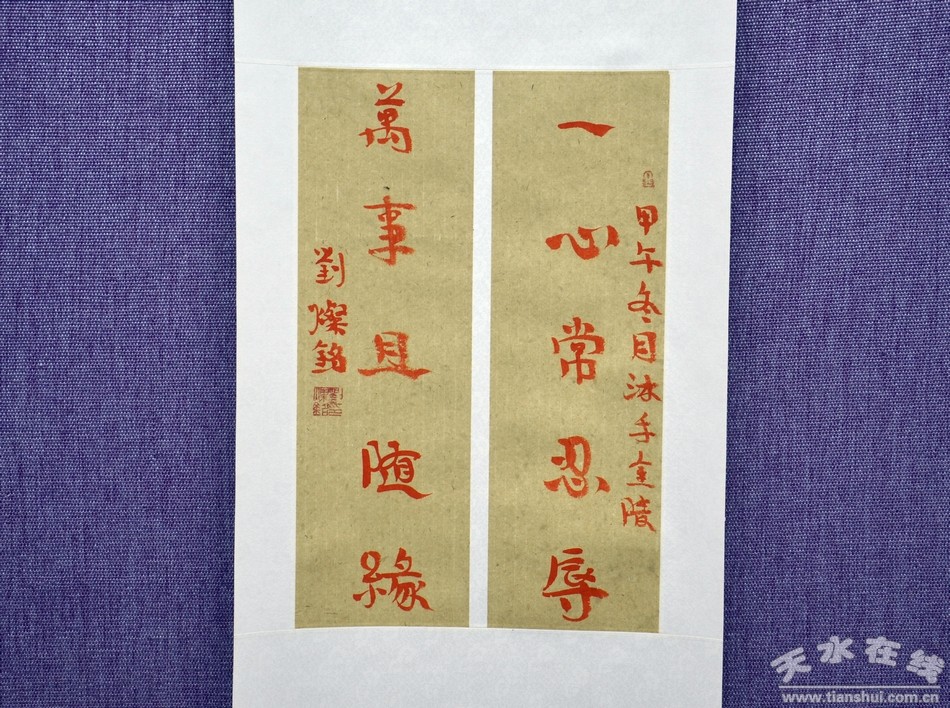 一心常忍辱
甲午冬月沐手金陵
萬事且随緣
劉燦銘
天水在线
www.tianshui.com.cn